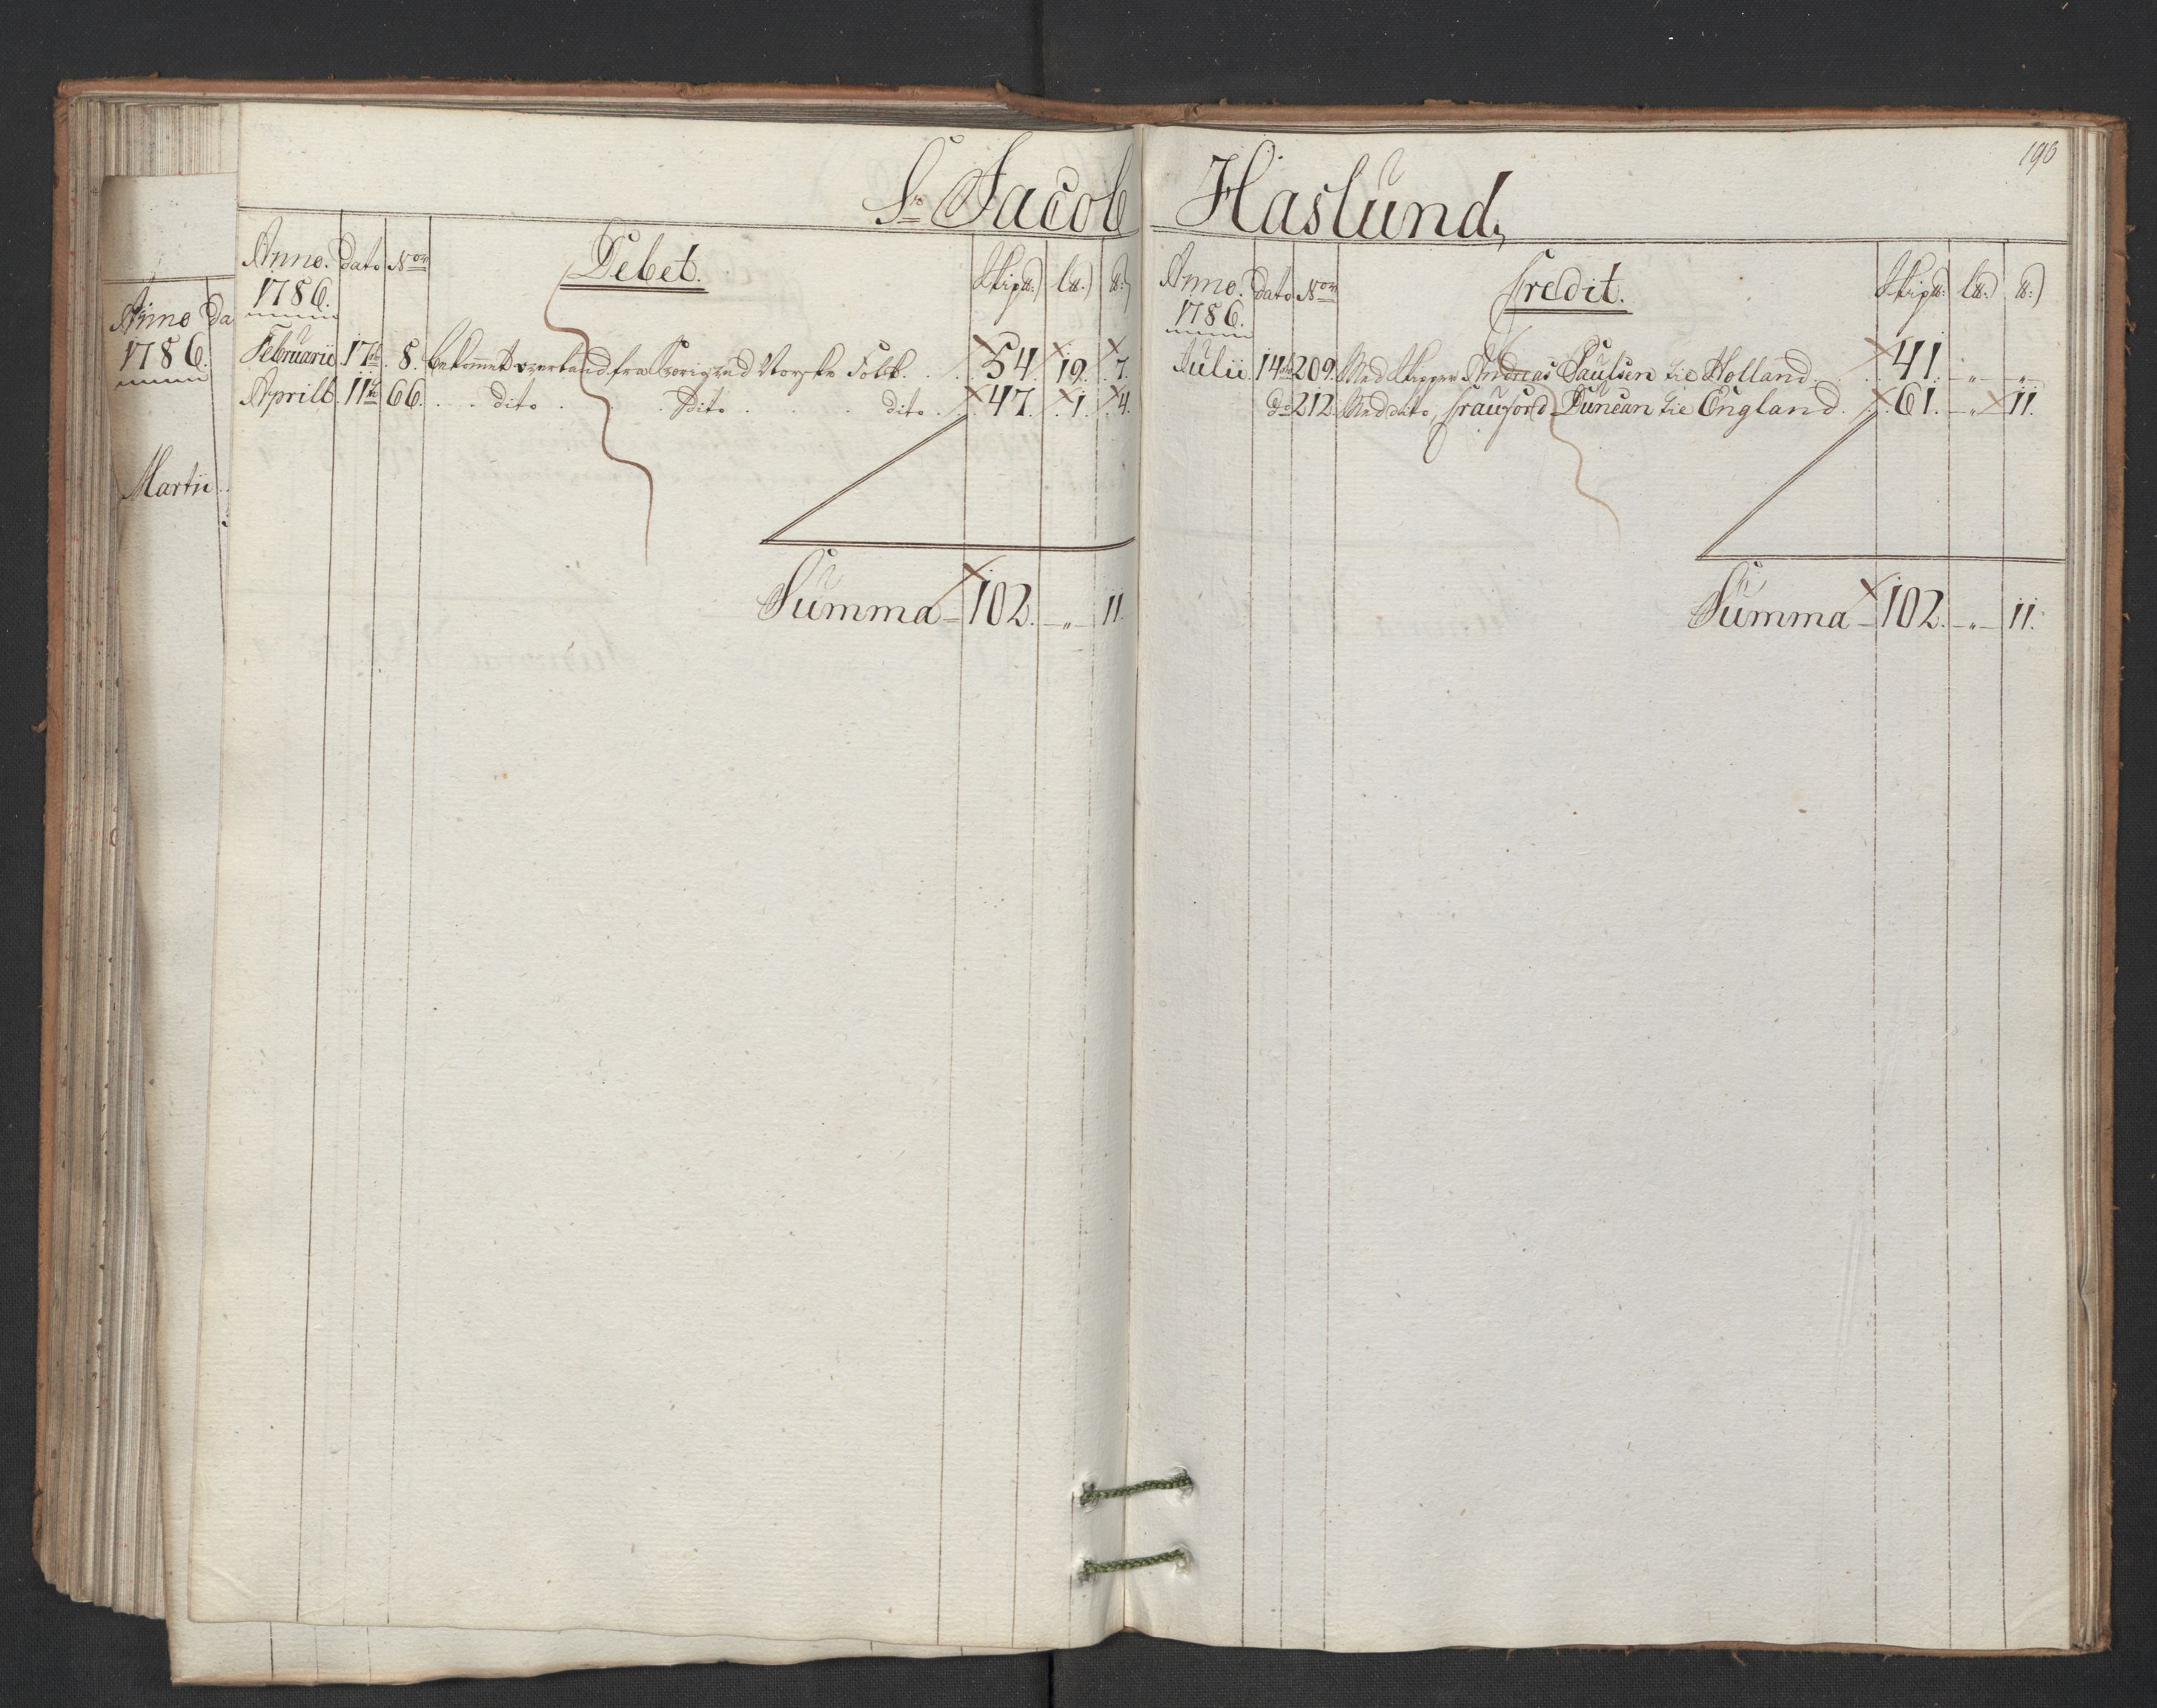 190
Sr. Jacob Haslund,
Anno. dato Nom Debet. Skip℔:) L℔:) ℔:)
1786.
Februarii 17de 8. Bekommet over land fra Norske Folk. 54. 19. 7.
Aprill. 11te 66. dito Dito dito. 47. 1. 4.
Summa 102. „ 11.
Anno. dato Nom Credit. Skip℔: L℔:) ℔:)
1786.
Julii 14de 209. Med Skipper Andreas Paulsen til Holland. 41. „ „
do 212. Med dito, Crauford Duncan til England. 61. „ 11.
Summa 102. „ 11.
Anno da
1786.
Martii